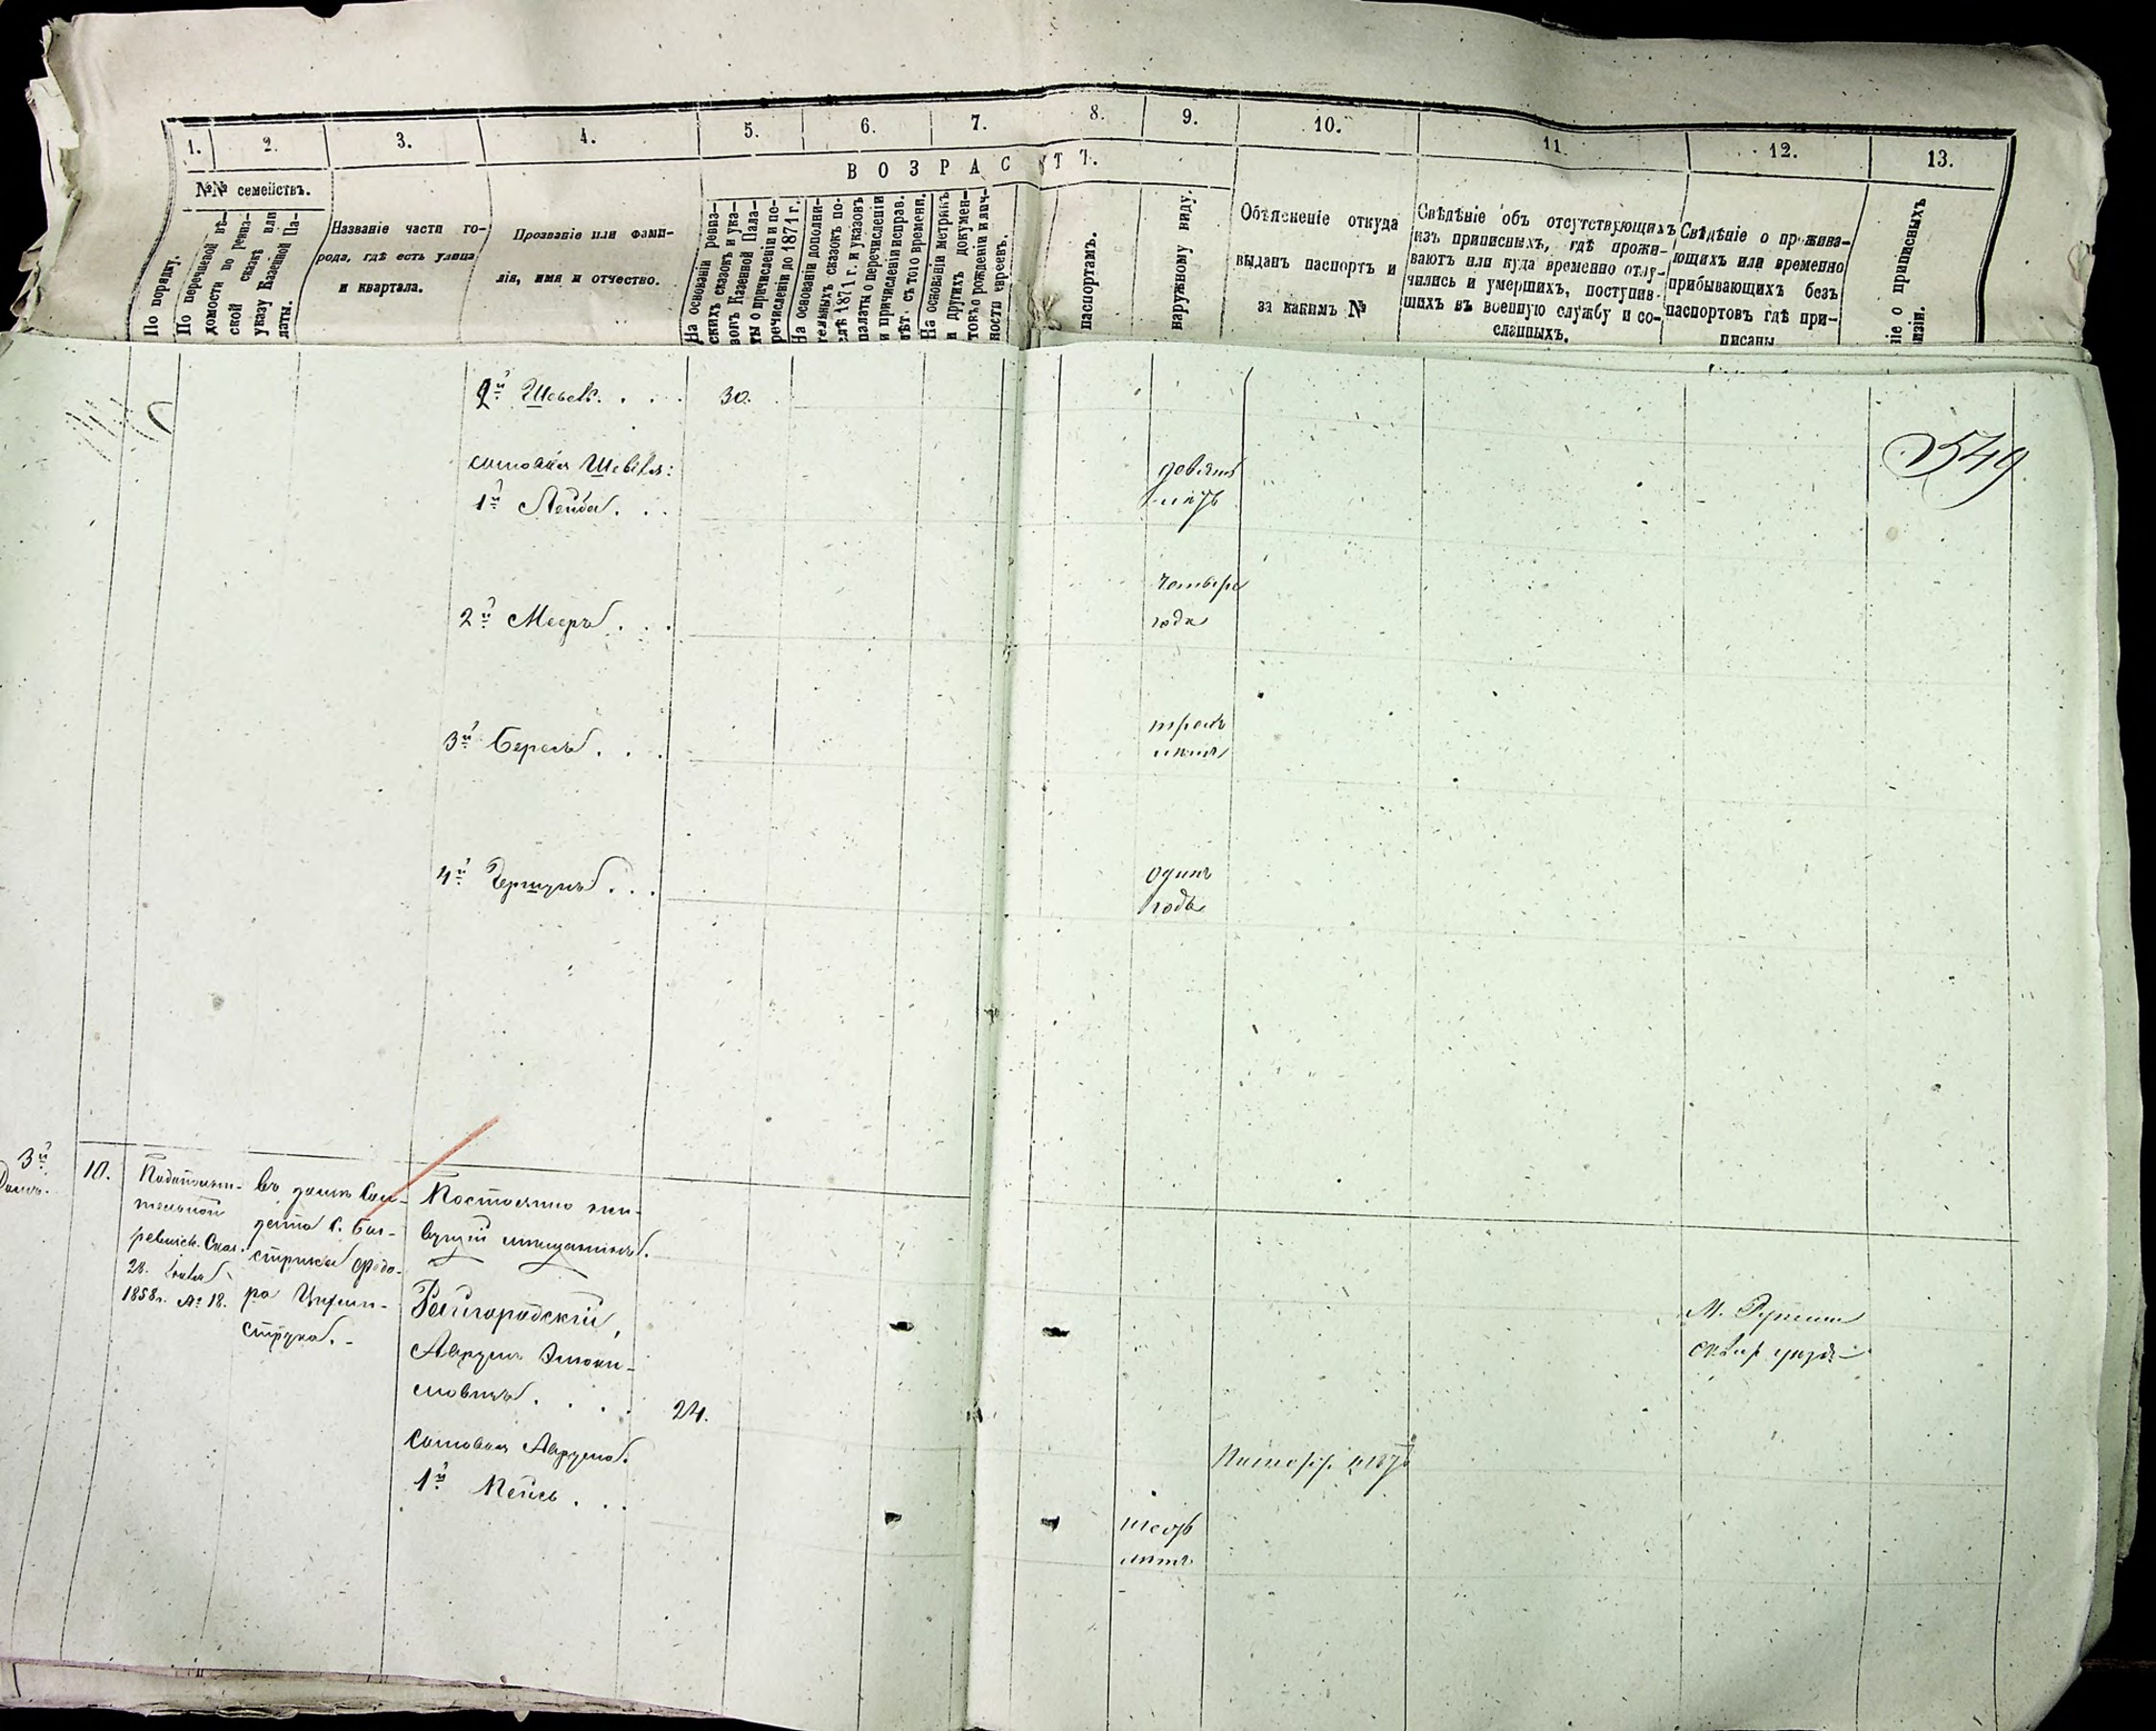 1.
2.
3.
4.
5.
6.
7.
8.
9.
10.
11.
12.
13.
№№ семействъ.
ВОЗРАСТЪ.
По порядку.
По перечневой вѣ-
домости по ревиз-
ской сказкѣ или
указу Казенной Па-
латы.
Названіе части го-
рода, гдѣ есть улица
и квартала.
Прозваніе или фами-
лія, имя и отчество.
На основаніи ревиз-
скихъ сказокъ и ука-
зовъ Казенной Пала-
ты о причисленіи и пе-
речисленіи до 1871 г.
На основаніи дополни-
тельныхъ сказокъ по-
слѣ 1871 г. и указовъ
палаты о перечисленіи
и причисленіи исправ.
лѣт. съ того времени.
На основаніи метрикъ
и другихъ докумен-
товъ о рожденіи и лич-
ности евреевъ.
паспортамъ.
наружному виду.
Объясненіе откуда
выданъ паспортъ и
за какимъ №
Свѣдѣніе объ отсутствующихъ
изъ приписныхъ, гдѣ прожи-
ваютъ или куда временно отлу-
чились и умершихъ, поступив-
шихъ въ военную службу и со-
сланныхъ.
Свѣдѣніе о прожива-
ющихъ или временно
прибывающихъ безъ
паспортовъ гдѣ при-
писаны
ніе о приписныхъ
визіи.
2й Шевель. . . . 30.
549
сыновья Шевеля:
девять
1й Лейба. . .
лѣтъ
четыре
2й Мееръ . . .
года
трехъ
3й Берель . . .
лѣтъ
одинъ
4й Гершунъ . . .
годъ
3й
Домъ.
10.
ревизск. Сказ.
28.
1858г. № 18.
въ домѣ
Постоянно жи-
вущій мѣщанинъ.
Райгородскій,
Аврумъ
мовичъ . . . . 24.
М.
сквир. уѣзда
Сыновья Аврума.
1й Пейсъ . . .
шесть
лѣтъ